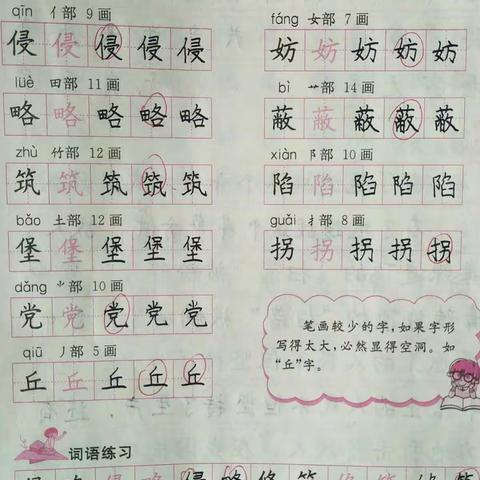 qīn 亻部 9 画
侵 侵 侵 侵 侵
lüè 田部 11 画
略 略 略 略 略
zhù 竹部 12 画
筑 筑 筑 筑 筑
bǎo 土部 12 画
堡 堡 堡 堡 堡
dǎng ⺌部 10 画
党 党 党 党 党
qiū 丿部 5 画
丘 丘 丘 丘 丘
fáng 女部 7 画
妨 妨 妨 妨 妨
bì 艹部 14 画
蔽 蔽 蔽 蔽 蔽
xiàn 阝部 10 画
陷 陷 陷 陷 陷
guǎi 扌部 8 画
拐 拐 拐 拐 拐
笔画较少的字,如果字形
写得太大,必然显得空洞。如
“丘”字。
词语练习
侵 略 修 筑